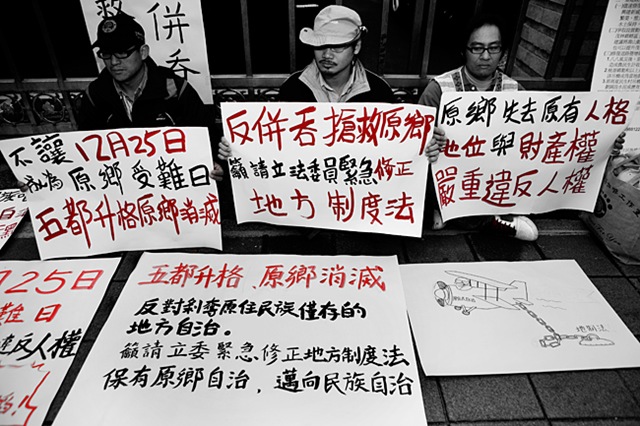 併吞
不讓12月25日
成為原鄉受難日
五都升格原鄉消滅
反併吞搶救原鄉
籲請立法委員緊急修正
地方制度法
原鄉失去原有人格
地位與財產權
嚴重違反人權
25日
難日
違反人權
五都升格、原鄉消滅
反對剝奪原住民族僅存的
地方自治。
籲請立委緊急修正地方制度法
保有原鄉自治，邁向民族自治
地制法